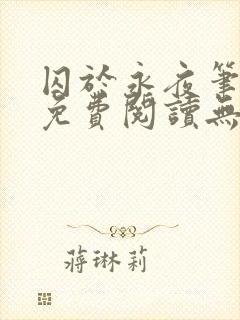 囚於永夜筆
免費閱讀無
蔣琳莉